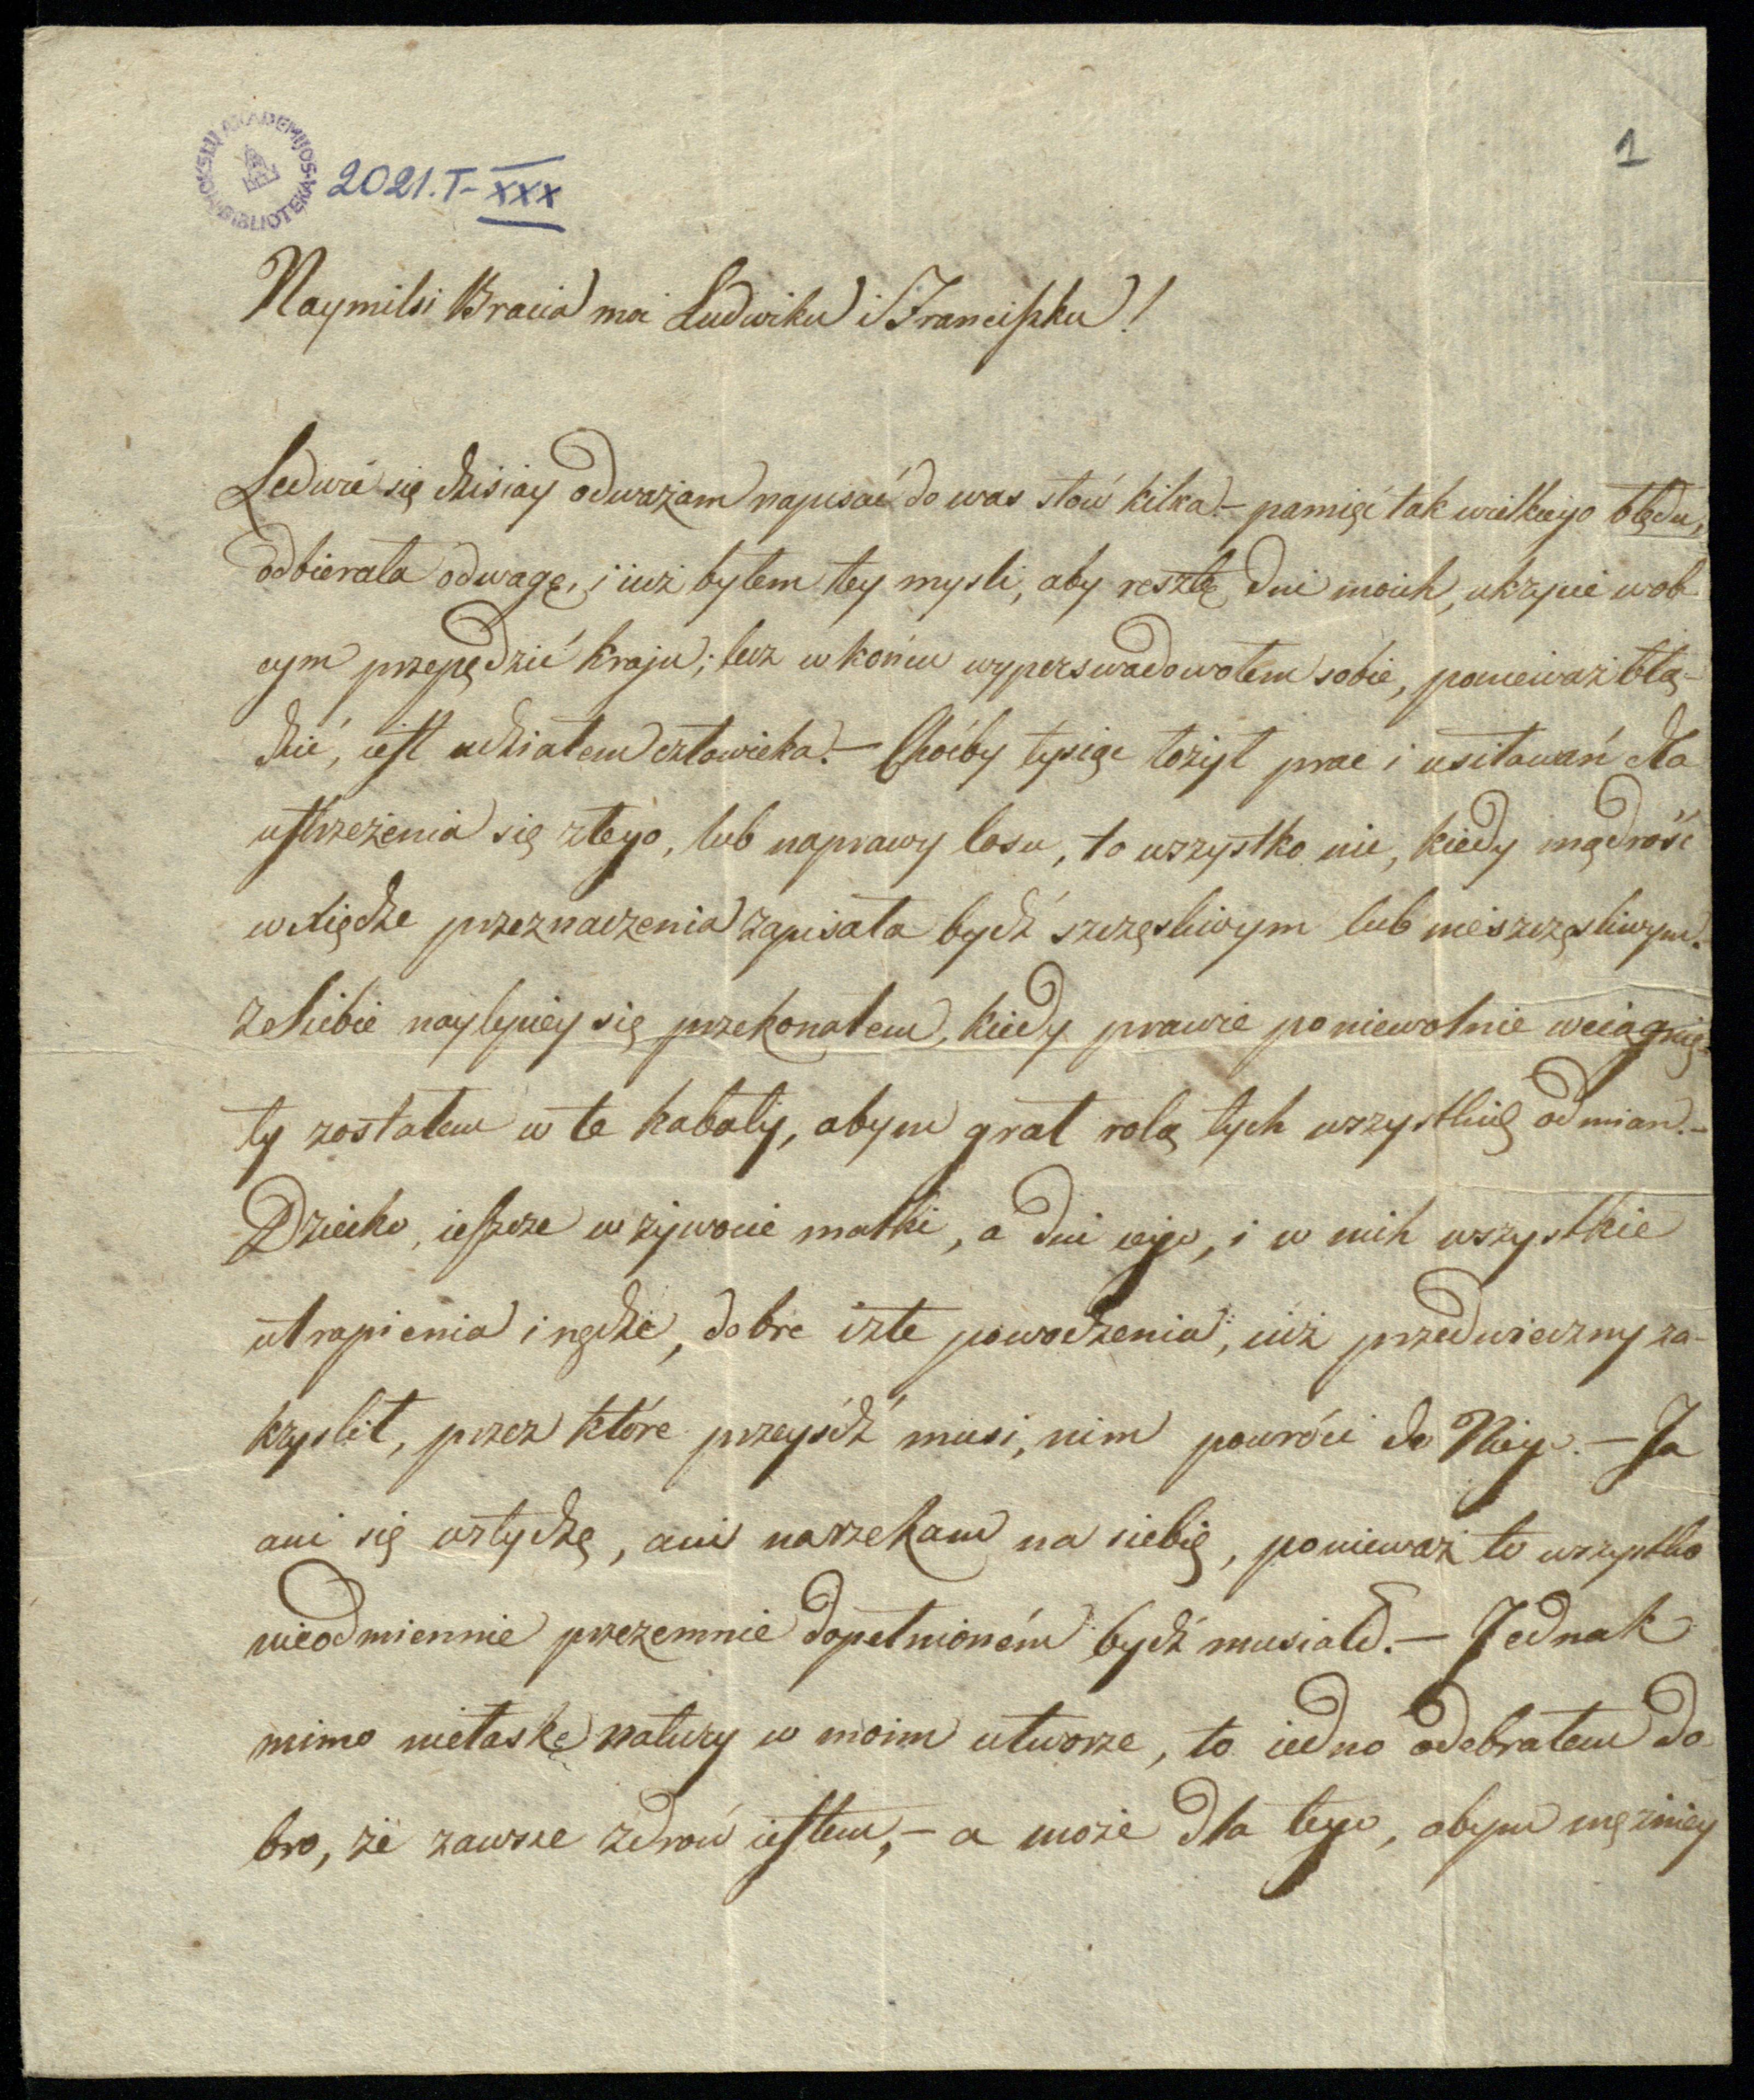 MOKSLŲ AKADEMIJOS BIBLIOTEKA
2021.T-XXX
1
Naymilsi Bracia moi Ludwiku i Franciszku!
Ledwie się dzisiay odważam napisać do was słów kilka. – pamięć tak wielkiego błędu,
odbierała odwagę, i iuż byłem tey mysli, aby resztę dni moich, ukrycie w ob
cym przepędzić kraju; lecz w końcu wyperswadowałem sobie, ponieważ błą-
dzić, iest udziałem człowieka. – Choćby tysiąc łożył prac i usiłowań dla
ustrzeżenia się złego, lub naprawy losu, to wszystko nic, kiedy mądrość
w xiędze przeznaczenia zapisała bydź szczęsliwym lub nieszczęsliwym.
Ze siebie naylepiey się przekonałem, kiedy prawie poniewolnie wciągnię-
ty zostałem w te kabały, abym grał rolą tych wszystkich odmian. –
Dziecko, ieszcze w żywocie matki, a dni iego, i w nich wszystkie
utrapienia i nędze, dobre i złe powodzenia, iuż przedwieczny za-
kryslił, przez które przeyśdź musi, nim powróci do Niego. – Ja
ani się wstydzę, ani narzekam na siebie, ponieważ to wszystko
nieodmiennie przezemnie dopełnioném bydź musiało. – Jednak
mimo niełaskę natury w moim utworze, to iedno odebrałem do
bro, że zawsze zdrów iestem, – a może dla tego, abym mężniey